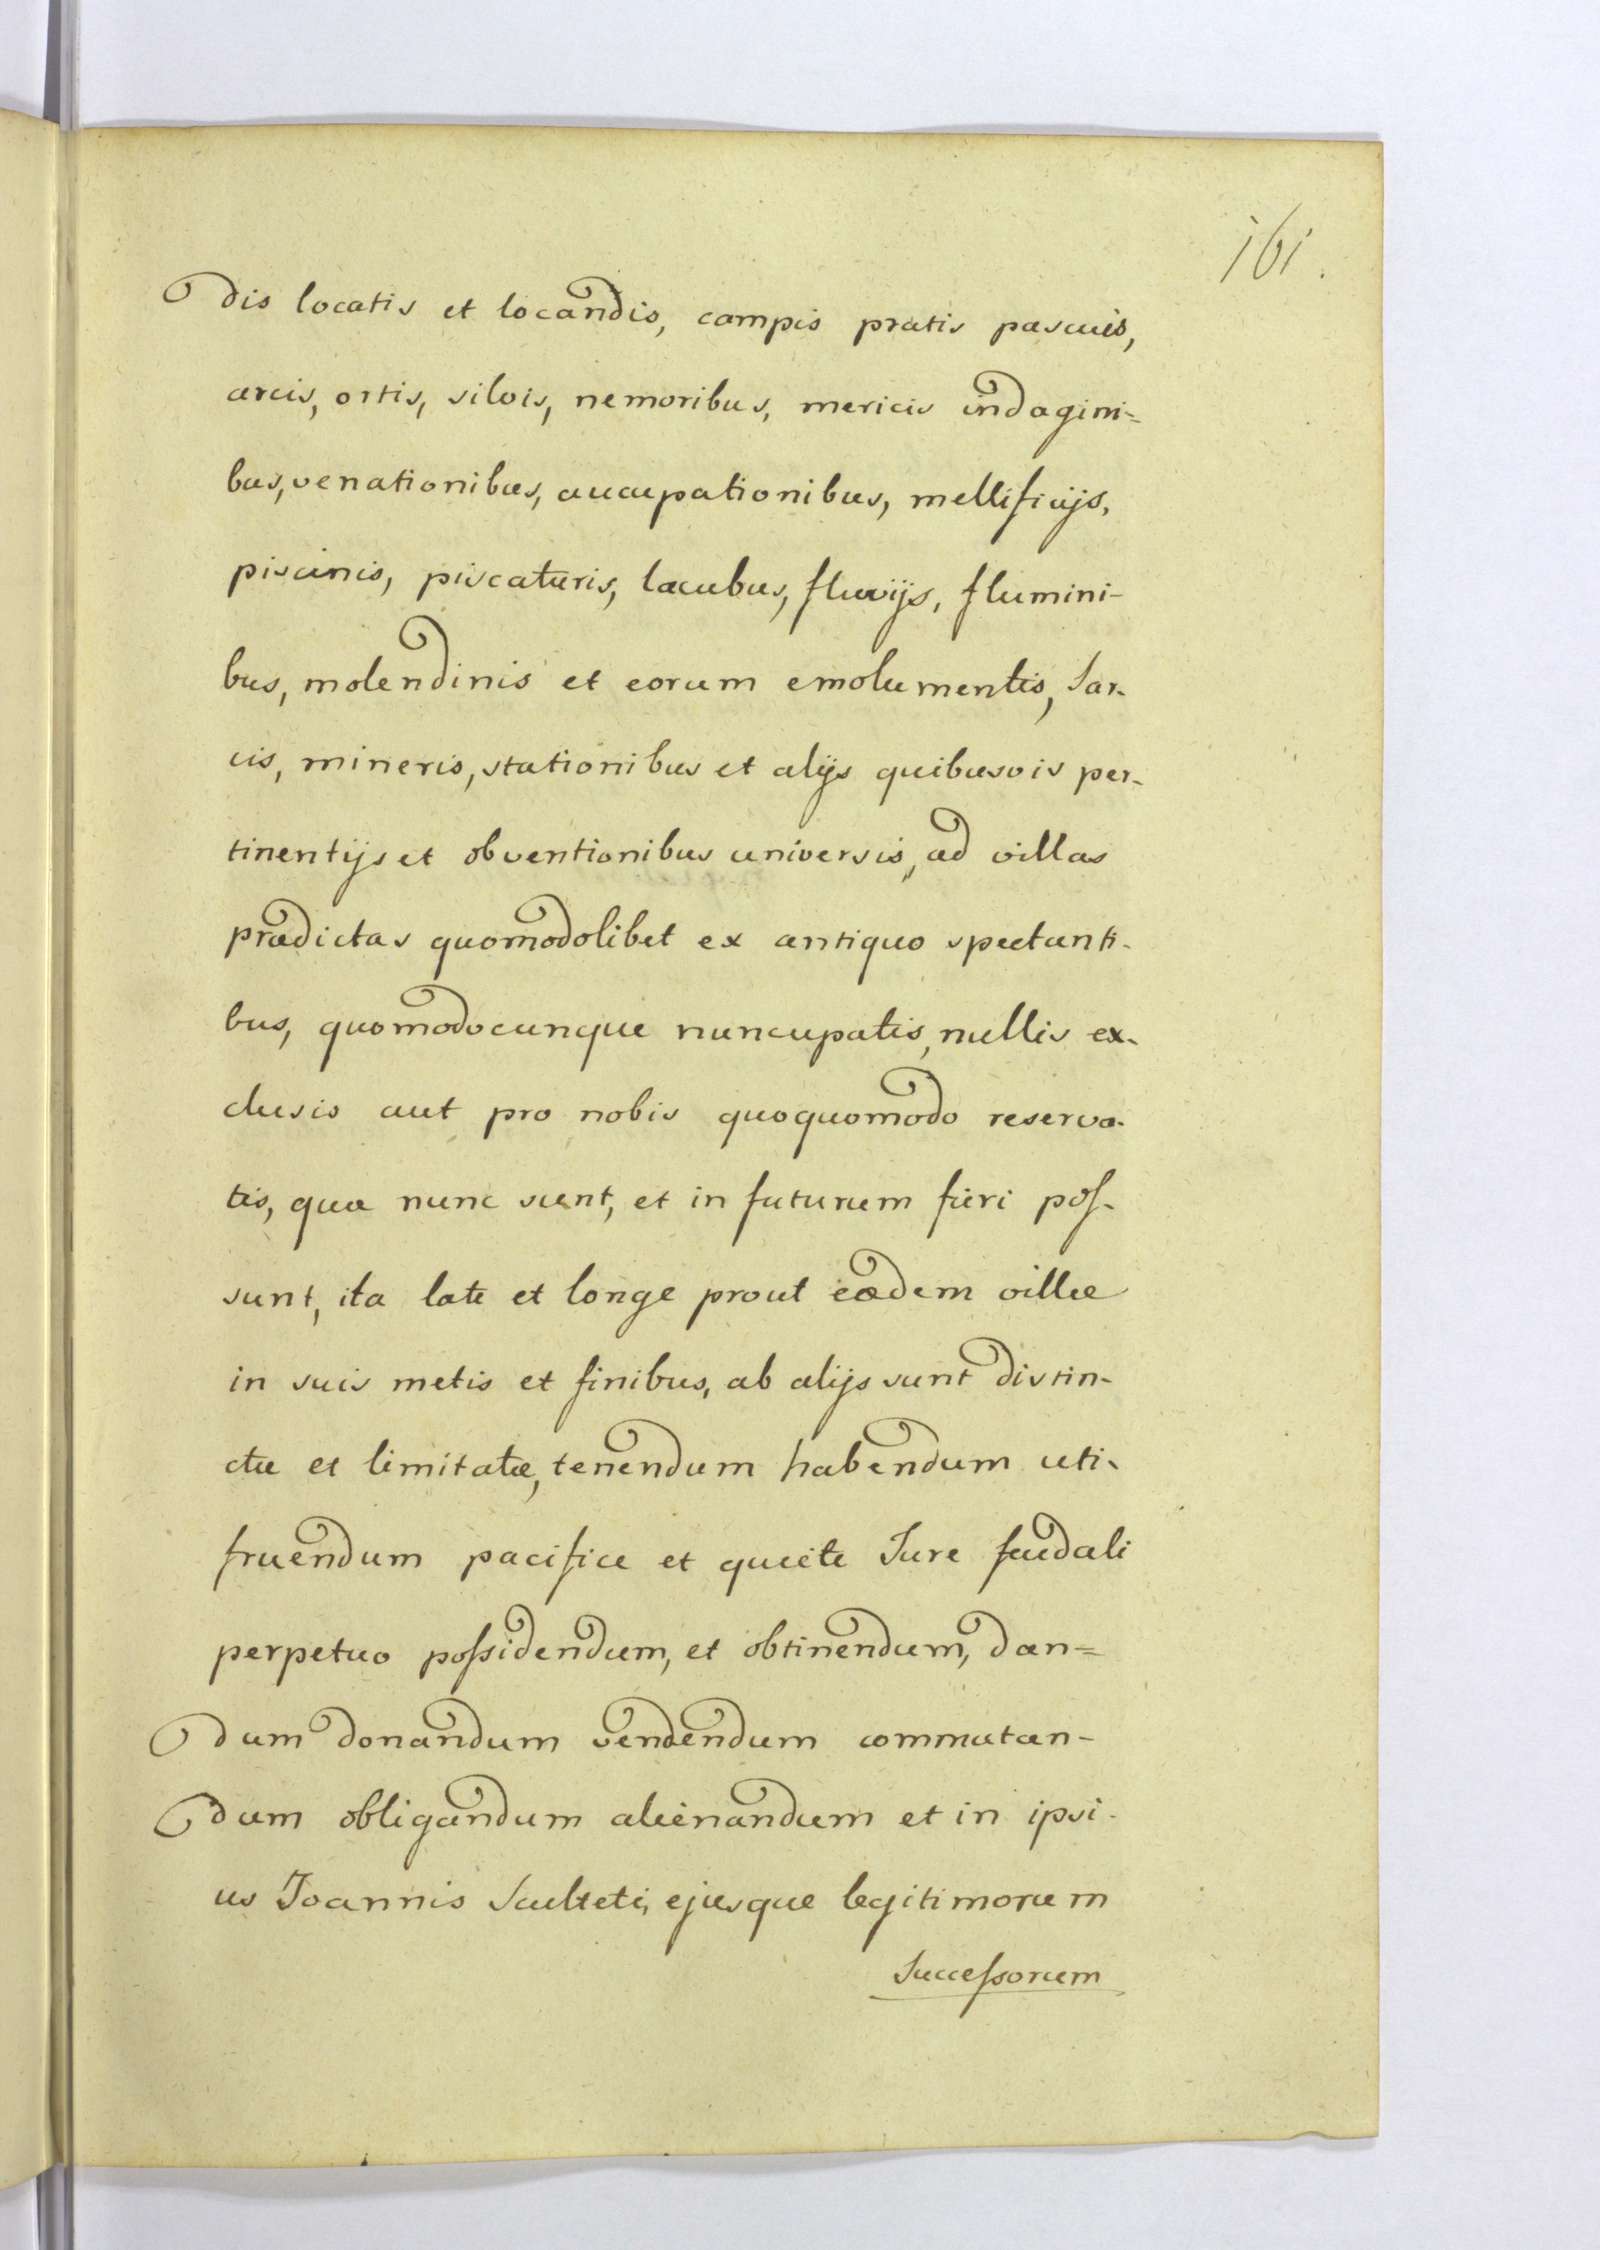 161.
dis locatis et locandis, campis pratis pascuis,
arcis, ortis, silvis, nemoribus, mericis indagini=
bus, venationibus, aucupationibus, mellificijs,
piscinis, piscaturis, lacubus, fluvijs, flumini-
bus, molendinis et eorum emolumentis, Sar-
cis, mineris, stationibus et alijs quibusvis per-
tinentijs et obventionibus universis, ad villas
prædictas quomodolibet ex antiquo spectanti-
bus, quomodocunque nuncupatis, nullis ex-
clusis aut pro nobis quoquomodo reserva-
tis, quæ nunc sunt, et in futurum fieri pos-
sunt, ita late et longe prout eædem villæ
in suis metis et finibus, ab alijs sunt distin-
ctæ et limitatæ, tenendum habendum uti-
fruendum pacifice et quiete Jure feudali
perpetuo possidendum, et obtinendum, dan=
dum donandum vendendum commutan-
dum obligandum alienandum et in ipsi-
us Joannis Sculteti, ejusque legitimorum
Successorum